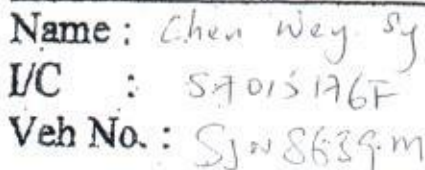 Name : Chen Wey Sy
I/C : S7015176F
Veh No. : SJN8639M